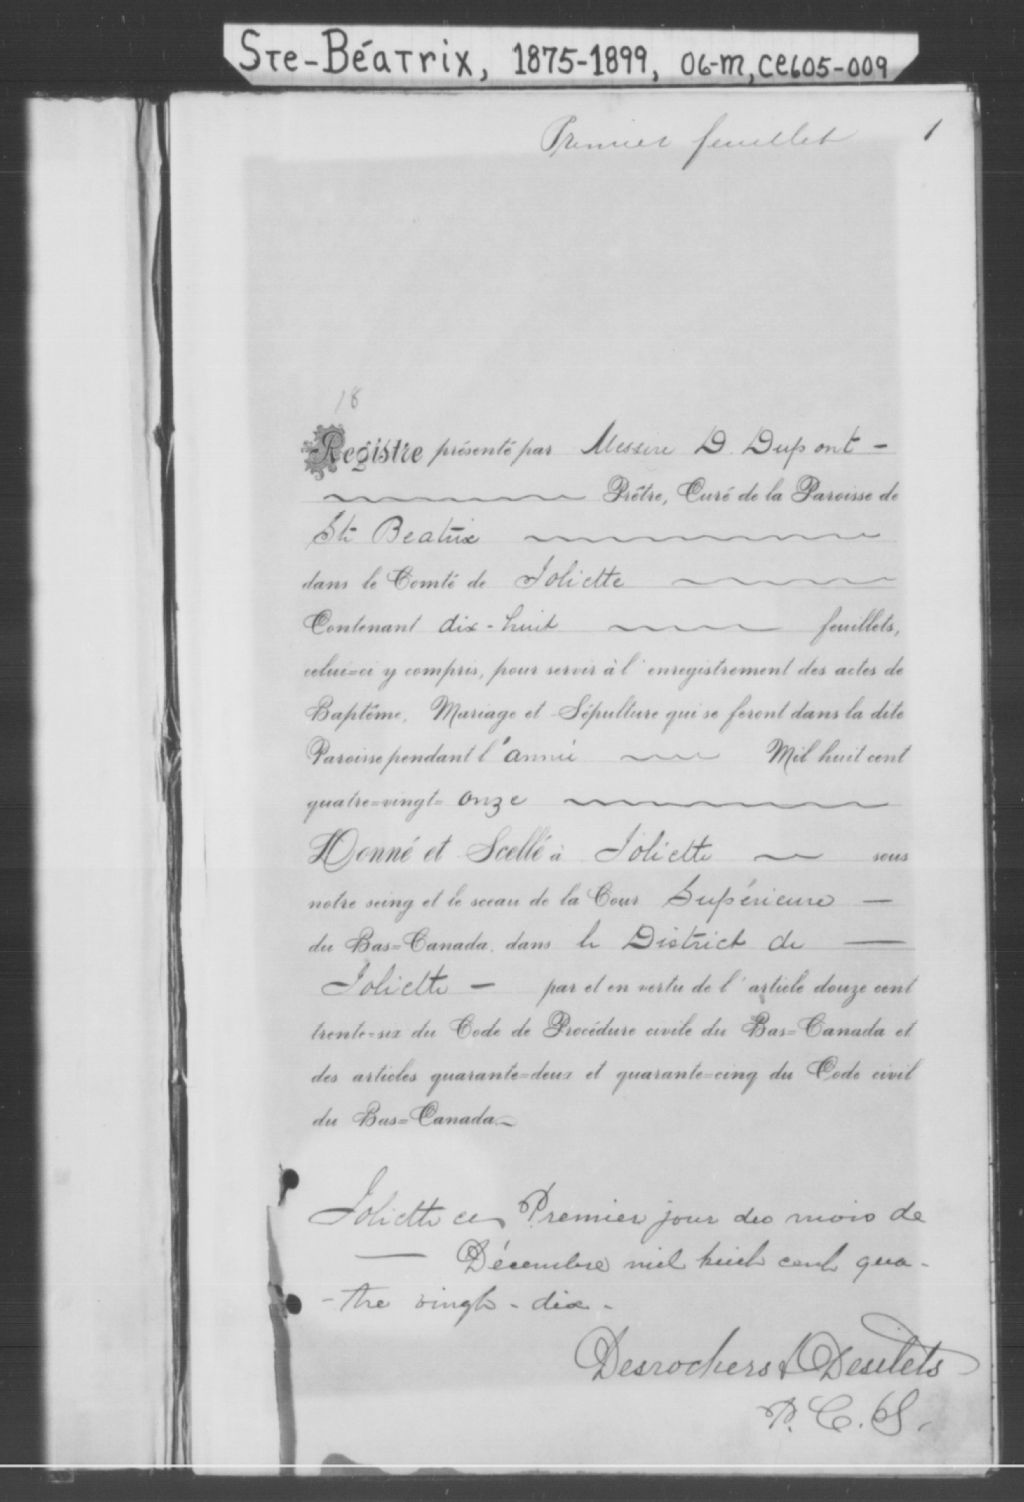 Ste-Béatrix, 1875-1899, 06-M, CE605-009
Premier feuillet 1
18
Registre présenté par Messire D. Dupont -
Prêtre, Curé de la Paroisse de
Ste Beatrix
dans le Comté de Joliette
Contenant dix-huit feuillets,
celui=ci y compris, pour servir à l'enregistrement des actes de
Baptême, Mariage et Sépulture qui se feront dans la dite
Paroisse pendant l'année Mil huit cent
quatre=vingt= onze
Donné et Scellé à Joliette sous
notre seing et le sceau de la Cour Supérieure -
du Bas=Canada, dans le District de
Joliette - par et en vertu de l'article douze cent
trente=six du Code de Procédure civile du Bas=Canada et
des articles quarante=deux et quarante=cinq du Code civil
du Bas=Canada.
Joliette ce Premier jour du mois de
Décembre mil huit cent qua-
-tre vingt-dix.
Desrochers & Desilets
P. C. S.